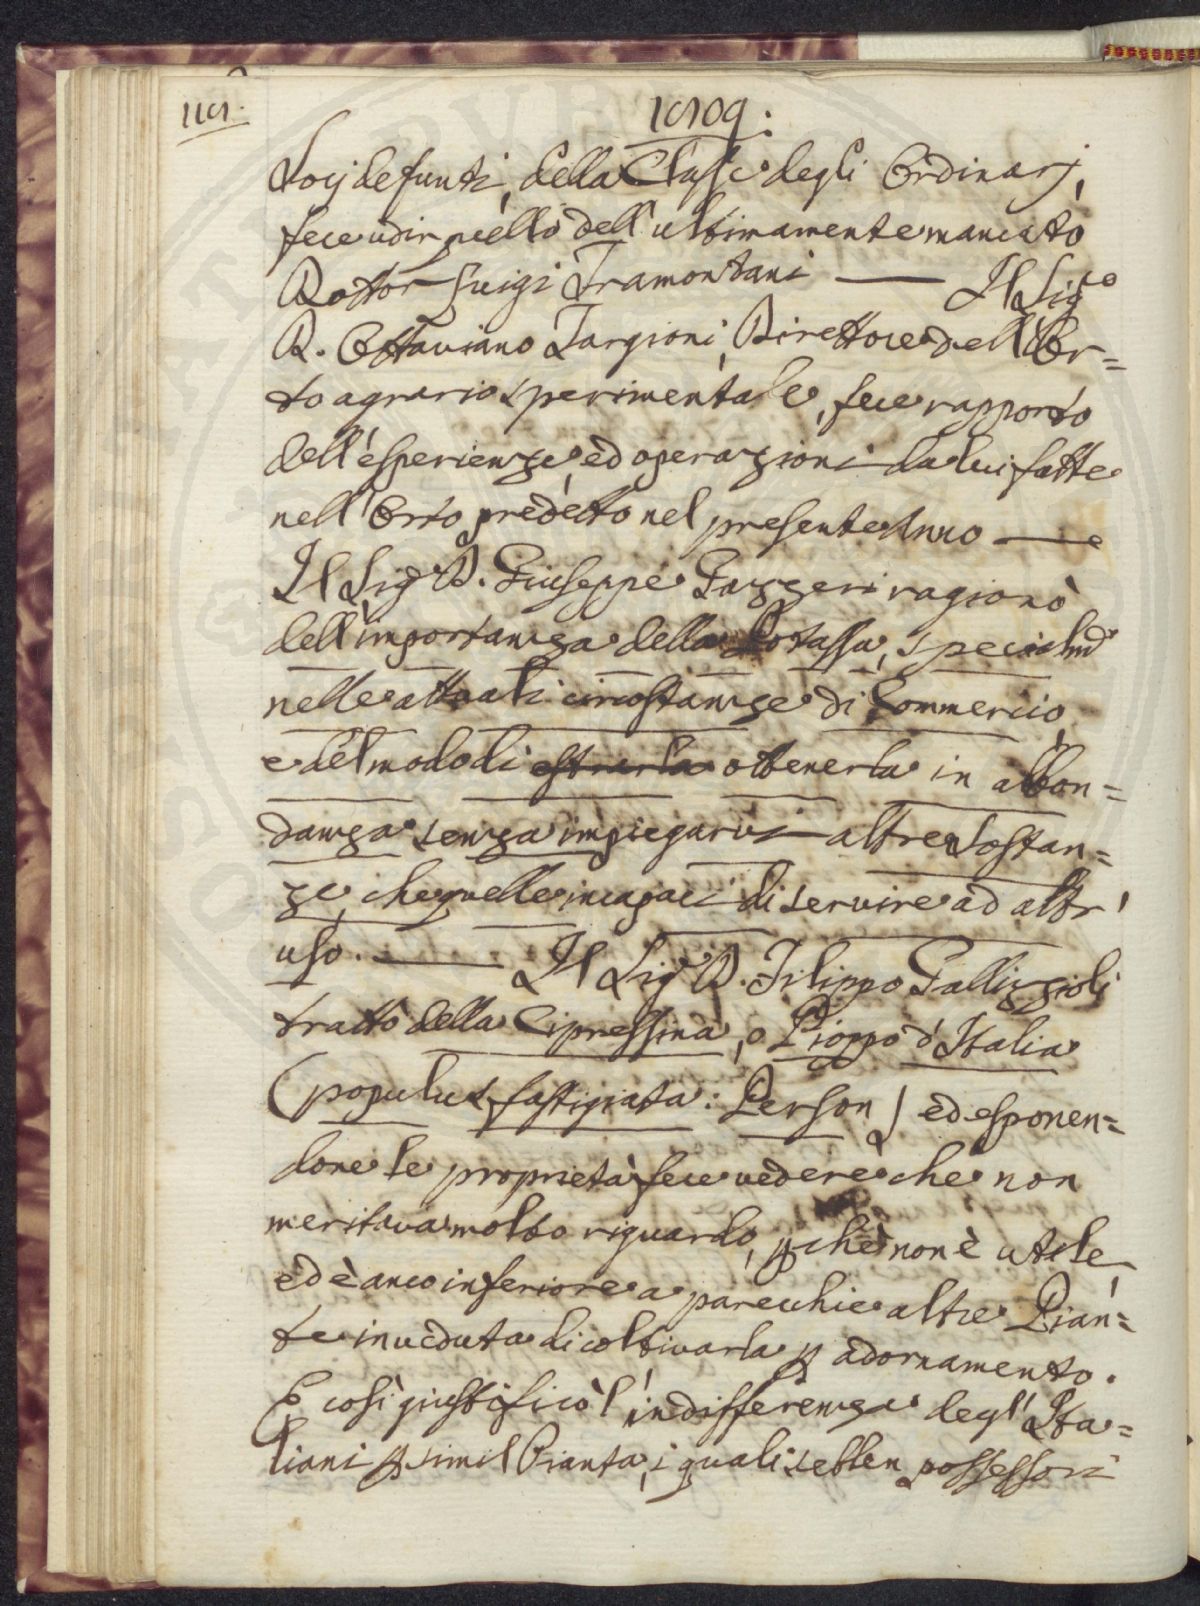 1809:
Socij defunti, della Classe degli Ordinarj,
fece udir quello dell'ultimamente mancato
Dottor Luigi Tramontani —— Il Sig.e
D. Ottaviano Targioni, Direttore dell'Or=
to agrario sperimentale, fece rapporto
dell'esperienze, ed operazioni da lui fatte
nell'Orto predetto nel presente Anno ——
Il Sig.e D. Giuseppe Gazzeri ragionò
dell'importanza della Potassa, specialm.e
nelle attuali circostanze di Commercio,
e del modo di estrarla ottenerla in abbon=
danza senza impiegarvi altre Sostan=
ze, che quelle incapaci di servire ad altr'
uso. —— Il Sig.e D. Filippo Gallizzioli
trattò della Cipressina, o Pioppo d'Italia
(populus fastigiata: Person) ed esponen=
done le proprietà fece vedere che non
meritava molto riguardo, p chè non è utile,
ed è anco inferiore a parecchie altre Pian=
te in veduta di coltivarla p adornamento.
E così giustificò l'indifferenza degl'Ita=
liani p simil Pianta, i quali sebben possessori